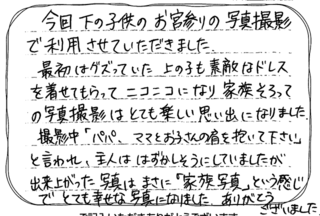 今回下の子供のお宮参りの写真撮影
で利用させていただきました。
最初はグズっていた上の子も素敵なドレス
を着せてもらってニコニコになり家族そろって
の写真撮影はとても楽しい思い出になりました。
撮影中「パパ、ママとお子さんの肩を抱いて下さい」
と言われ、主人ははずかしそうにしていましたが
出来上がった写真はまさに「家族写真」という感じ
でとても幸せな写真になりました。ありがとう
ございました。